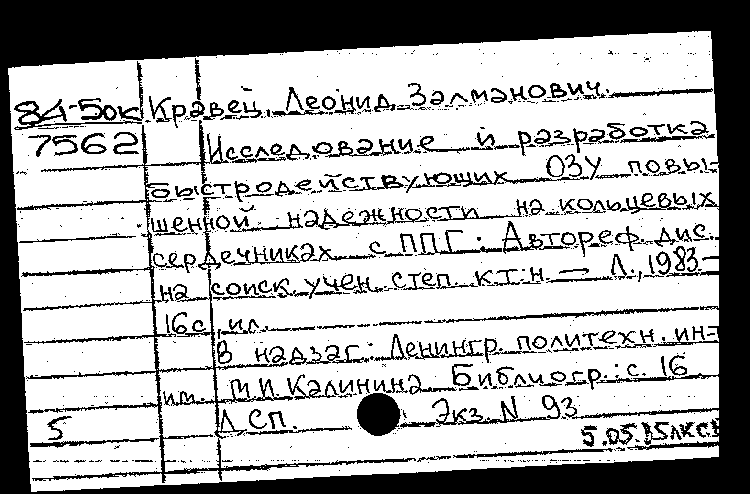 84-5ок Кравец, Леонид Залманович.
7562 Исследование и разработка
быстродействующих ОЗУ повы-
шенной надежности на кольцевых
сердечниках с ППГ: Автореф. дис.
на соиск. учен. степ. к.т.н. — Л., 1983-
16с., ил.
В надзаг.: Ленингр. политехн. ин-т
им. М.И. Калинина. Библиогр.: с. 16
5 Л СП. Экз. N 93
5.05.85